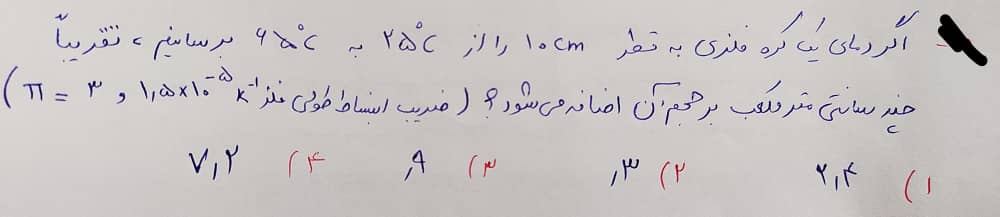 اگر دمای یک کره فلزی به قطر ۱۰cm را از ۲۵°C به ۶۵°C برسانیم، تقریباً
چند سانتی متر مکعب بر حجم آن اضافه می‌شود؟ (ضریب انبساط طولی فلز ۱٫۵×۱۰⁻⁵ K⁻¹ و π = ۳)
۱) ۲٫۴ ۲) ٫۳ ۳) ٫۹ ۴) ۷٫۲